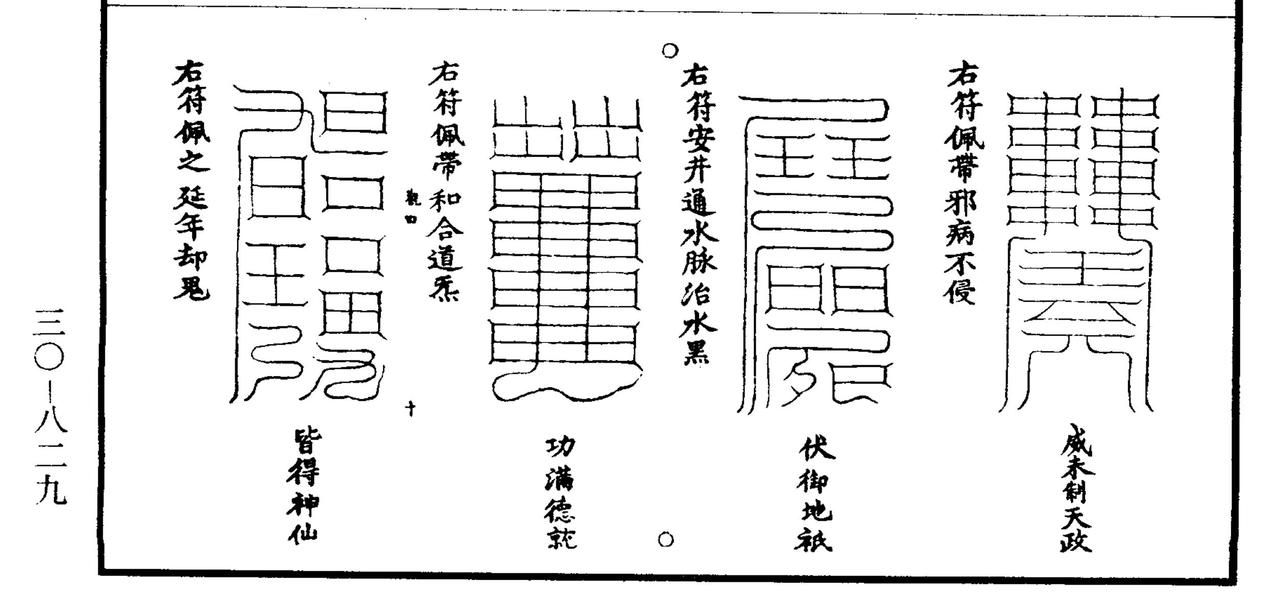 威未制天政
右符佩帶邪病不侵
伏御地祇
右符安井通水脉治水黑
功滿德就
右符佩帶和合道炁
觀四
十
皆得神仙
右符佩之延年却鬼
三〇—八二九